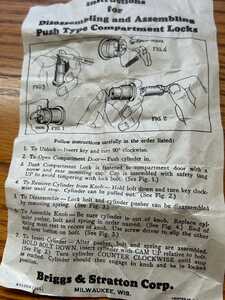 Instructions
for
Disassembling and Assembling
Push Type Compartment Locks
FIG. 4
FIG. 3
FIG. 1
FIG. 2
Follow instructions carefully in the order listed:
1. To Unlock—Insert key and turn 90° clockwise.
2. To Open Compartment Door—Push cylinder in.
3. Push Compartment Lock is fastened to compartment door with a
screw and rear mounting cap. Cap is assembled with safety lug
UP to avoid tampering with lock bolt. (See Fig. 1.)
4. To Remove Cylinder from Knob— Hold bolt down and turn key clock-
wise. Cylinder can be pulled out. (See Fig. 2.)
5. To Disassemble— Lock bolt and cylinder pusher can be
spring. (See Fig. 3.)
6. To Assemble Knob—Be sure cylinder is out of knob. Replace cyl-
inder pusher, bolt and spring in order named. (See Fig. 4.) End of
spring must rest on bolt. (See Fig. 3.)
7. To Insert Cylinder— After pusher, bolt and spring are assembled,
HOLD BOLT DOWN, insert cylinder with CAM UP relative to bolt.
(See Fig. 4.) Turn cylinder COUNTER CLOCKWISE until it
catches. Cylinder should then engage in knob and be locked
Briggs & Stratton Corp.
MILWAUKEE, WIS.